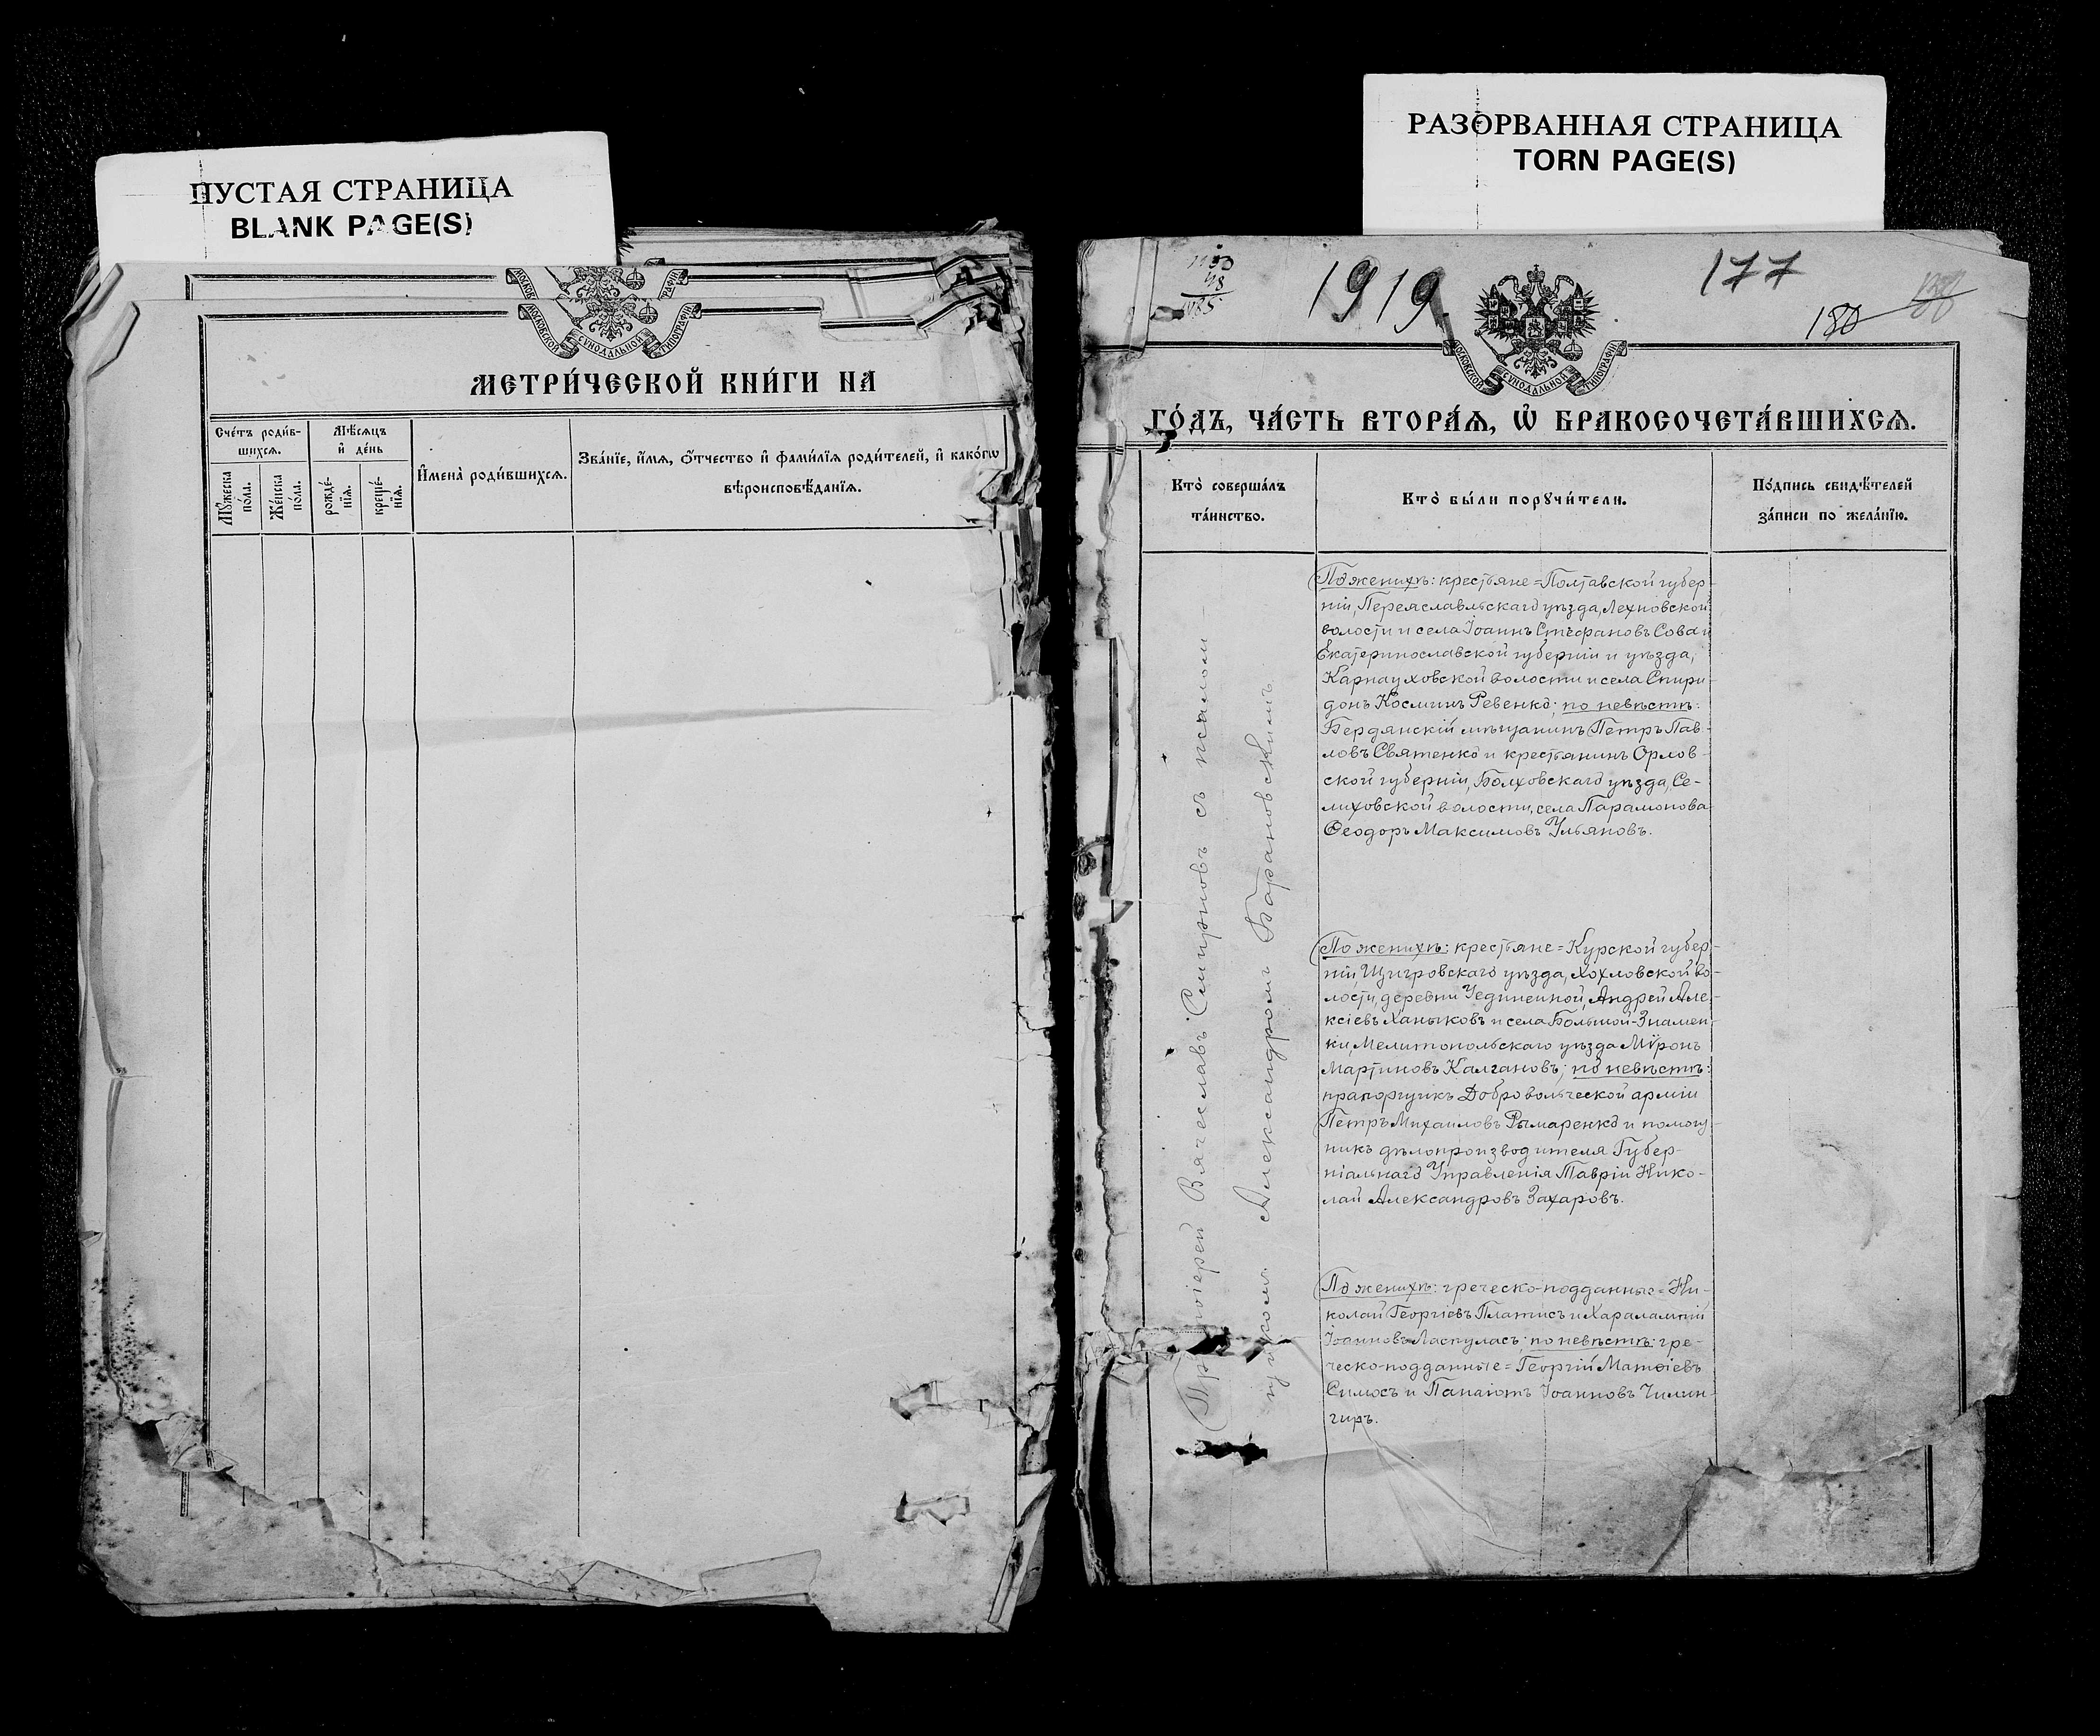 ПУСТАЯ СТРАНИЦА
BLANK PAGE(S)
РАЗОРВАННАЯ СТРАНИЦА
TORN PAGE(S)
МОСКОВСКОЙ СУНОДАЛЬНОЙ ТИПОГРАФІИ
МЕТРИ́ЧЕСКОЙ КНИ́ГИ НА
Сче́тъ роди́в-
шихсѧ.
Мѣ́сѧцъ
и҆ де́нь
Мꙋ́жеска по́ла.
Же́нска по́ла.
рожде́-
нїѧ.
креще́-
нїѧ.
И҆мена̀ роди́вшихсѧ.
Зва́нїе, и҆́мѧ, ѻ҆́тчество и҆ фами́лїѧ роди́телей, и҆ како́гѡ
вѣроисповѣ́данїѧ.
1919
177
180
МОСКОВСКОЙ СУНОДАЛЬНОЙ ТИПОГРАФІИ
ГО́ДЪ, ЧА́СТЬ ВТОРА́Ѧ, Ѡ҆ БРАКОСОЧЕТА́ВШИХСѦ.
Кто̀ соверша́лъ
та́инство.
Кто̀ бы́ли порꙋчи́тели.
По́дпись свидѣ́телей
за́писи по жела́нїю.
Протоіерей Вячеславъ Смирновъ съ псалом-
щикомъ Александромъ Барановскимъ
По женихѣ: крестьяне=Полтавской губер-
ніи, Переяславльскаго уѣзда, Лехновской
волости и села Іоаннъ Стефановъ Сова и
Екатеринославской губерніи и уѣзда,
Карнауховской волости и села Спири-
донъ Косминъ Ревенко; по невѣстѣ:
Бердянскій мѣщанинъ Петръ Пав-
ловъ Святенко и крестьянинъ Орлов-
ской губерніи, Болховскаго уѣзда, Се-
лиховской волости, села Парамонова
Ѳеодоръ Максимовъ Ульяновъ.
По женихѣ: крестьяне=Курской губер-
ніи, Щигровскаго уѣзда, Хохловской во-
лости, деревни Уединенной, Андрей Але-
ксіевъ Ханыковъ и села Большой-Знамен-
ки, Мелитопольскаго уѣзда Мѵронъ
Мартиновъ Калгановъ; по невѣстѣ:
прапорщикъ Добровольческой арміи
Петръ Михаиловъ Рымаренко и помощ-
никъ дѣлопроизводителя Губер-
ніальнаго Управленія Тавріи Нико-
лай Александровъ Захаровъ.
По женихѣ: греческо-подданные=Ни-
колай Георгіевъ Платисъ и Харалампій
Іоанновъ Ласкуласъ; по невѣстѣ: гре-
ческо-подданные=Георгій Матѳіевъ
Симосъ и Панаіотъ Іоанновъ Чилин-
гиръ.